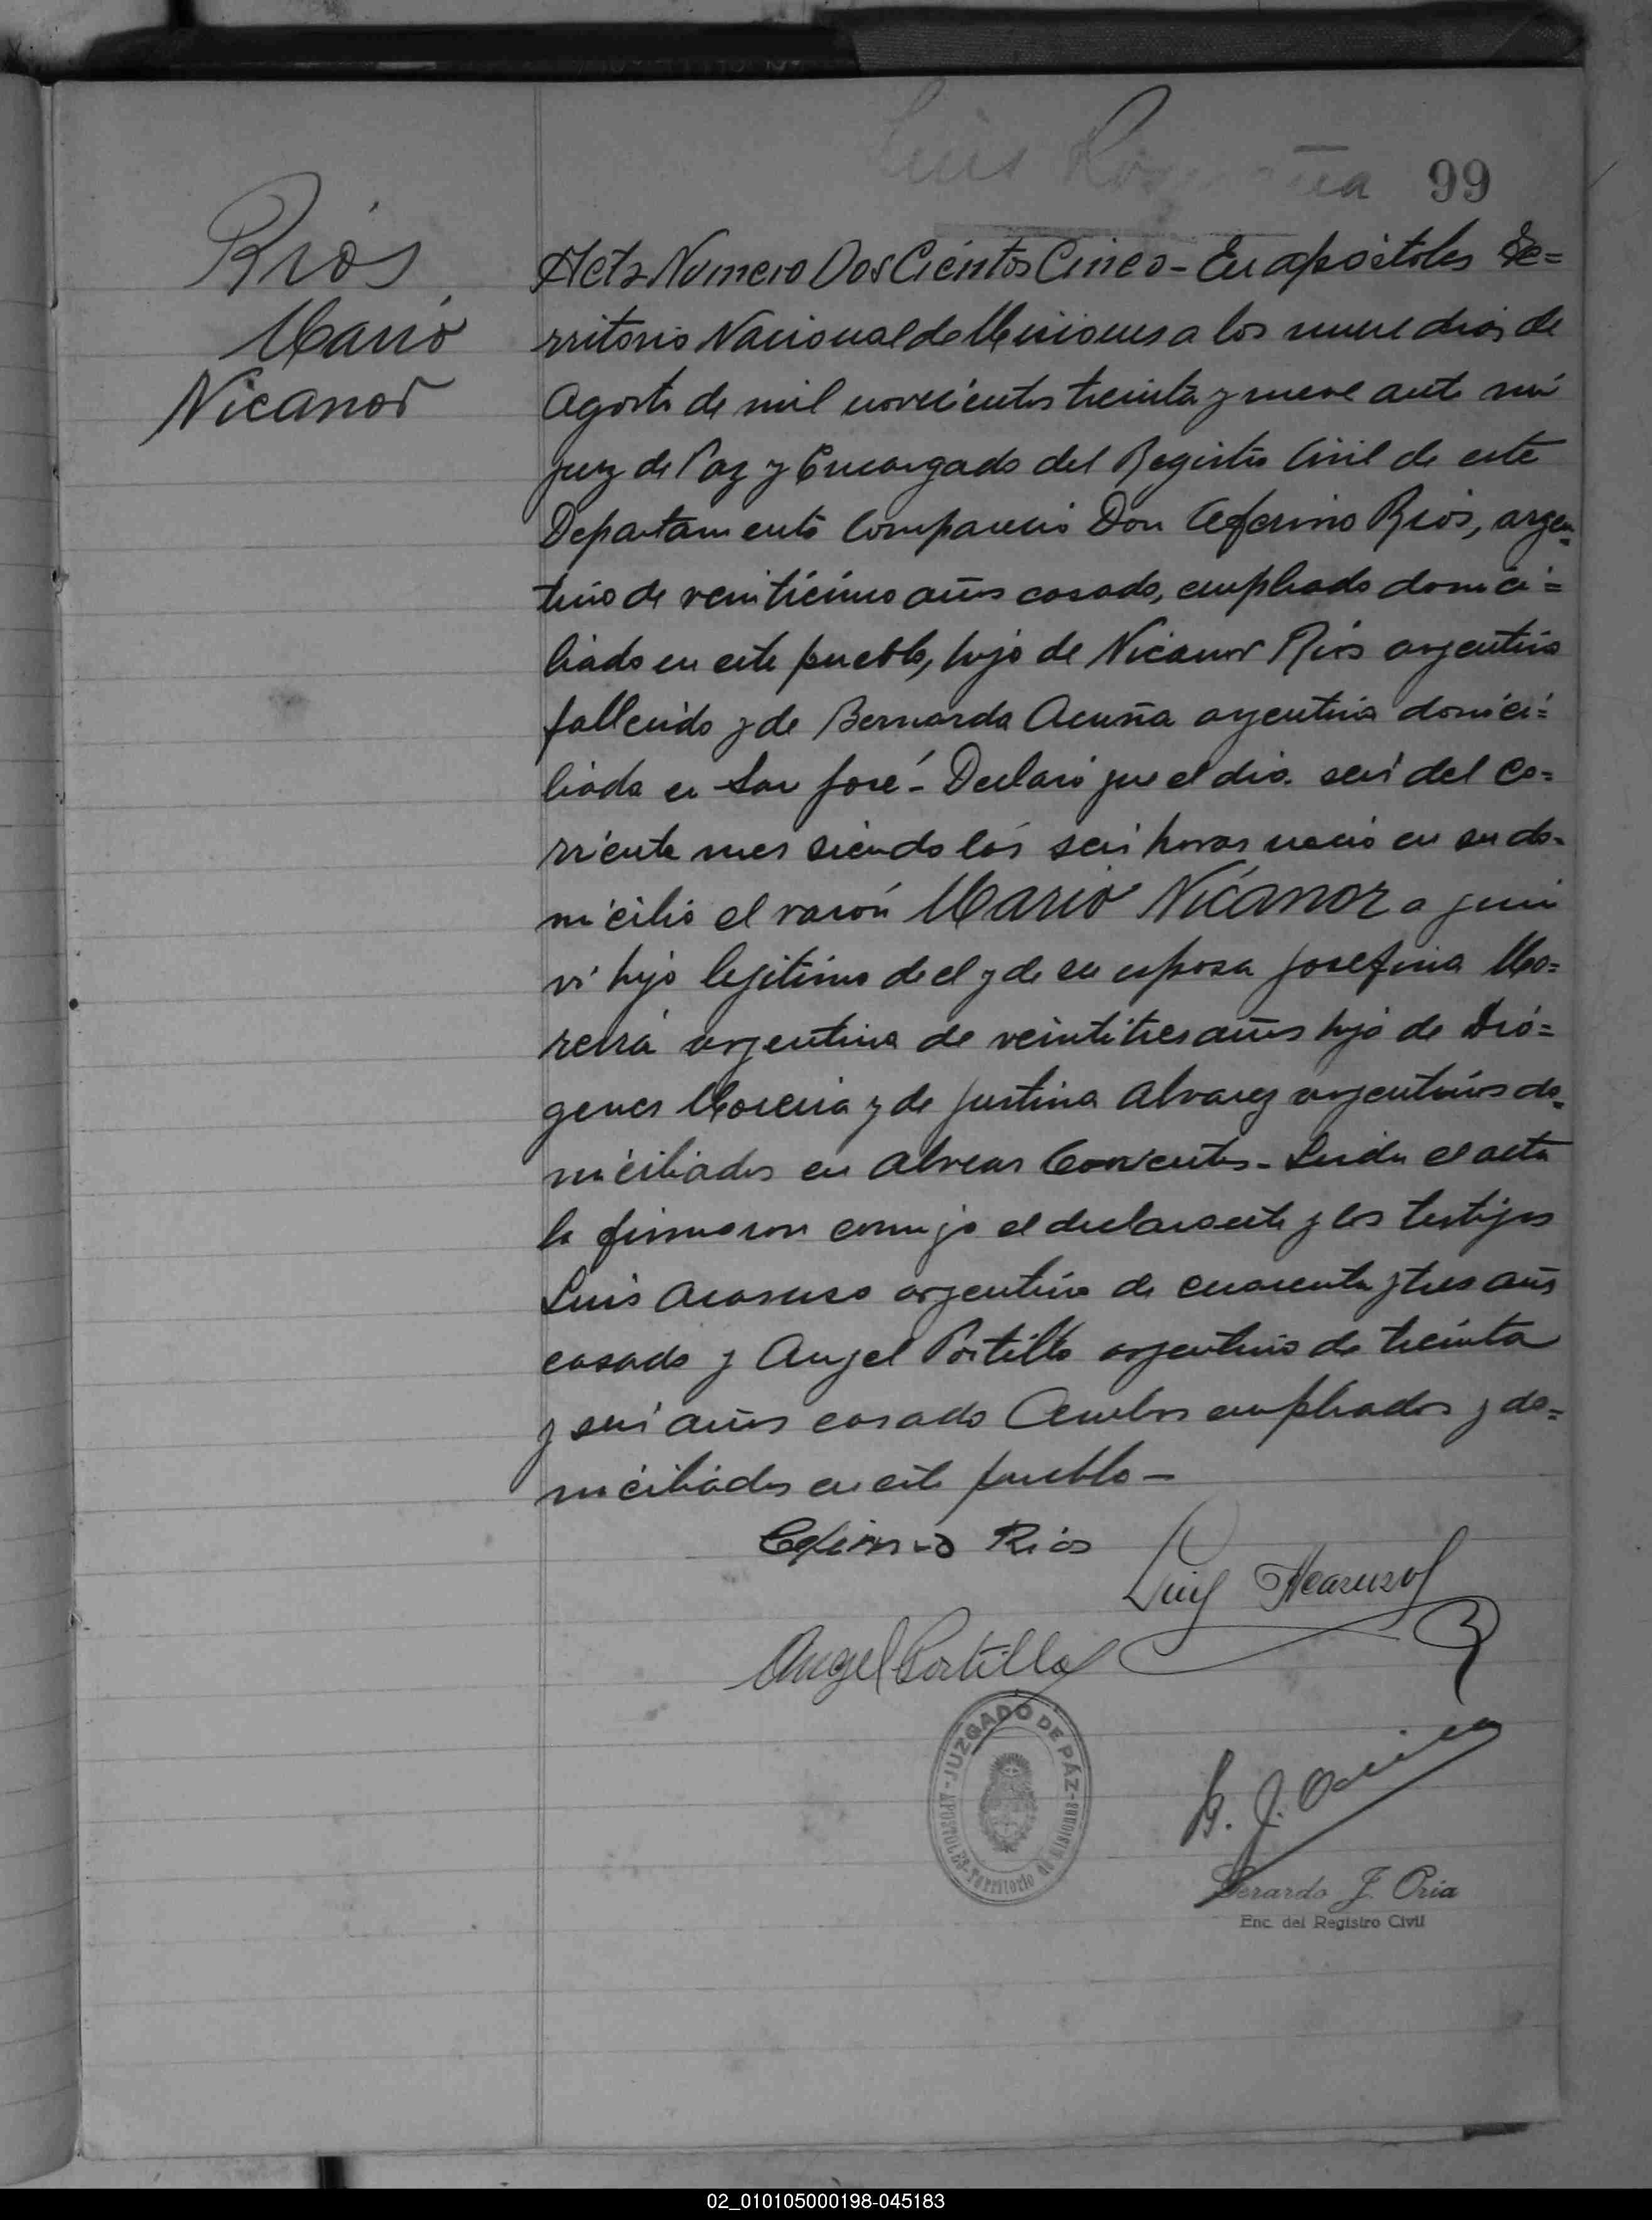 Luis
99
Rios
Mario
Nicanor
Acta Numero Dos Cientos Cinco - En apostoles Te=
rritorio Nacional de Misiones a los nueve dias de
Agosto de mil novecientos treinta y nueve ante mi
juez de Paz y Encargado del Registro Civil de este
Departamento Comparecio Don Ceferino Rios, argen=
tino de veinticinco años casado, empleado domici=
liado en este pueblo, hijo de Nicanor Rios argentino
fallecido y de Bernarda Acuña argentina domici=
liada en San José - Declaró que el dia seis del co=
rriente mes siendo las seis horas nació en su do=
micilio el varón Mario Nicanor a quien
vi hijo legitimo de el y de su esposa Josefina Mo=
reira argentina de veintitres años hija de Dió=
genes Moreira y de Justina Alvarez argentinos do=
miciliados en Alvear Corrientes - Leida el acta
la firmaron conmigo el declarante y los testigos
Luis Acasuso argentino de cuarenta y tres años
casado y Angel Portillo argentino de treinta
y seis años casado Ambos empleados y do=
miciliados en este pueblo -
Ceferino Rios
Luis Acasuso
Angel Portillo
JUZGADO DE PÁZ - APOSTOLES - Territorio de Misiones
G. J. Oria
Gerardo J. Oria
Enc. del Registro Civil
02_010105000198-045183